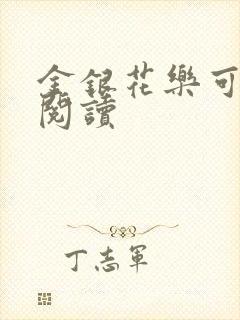 金銀花樂可
閱讀
丁志軍